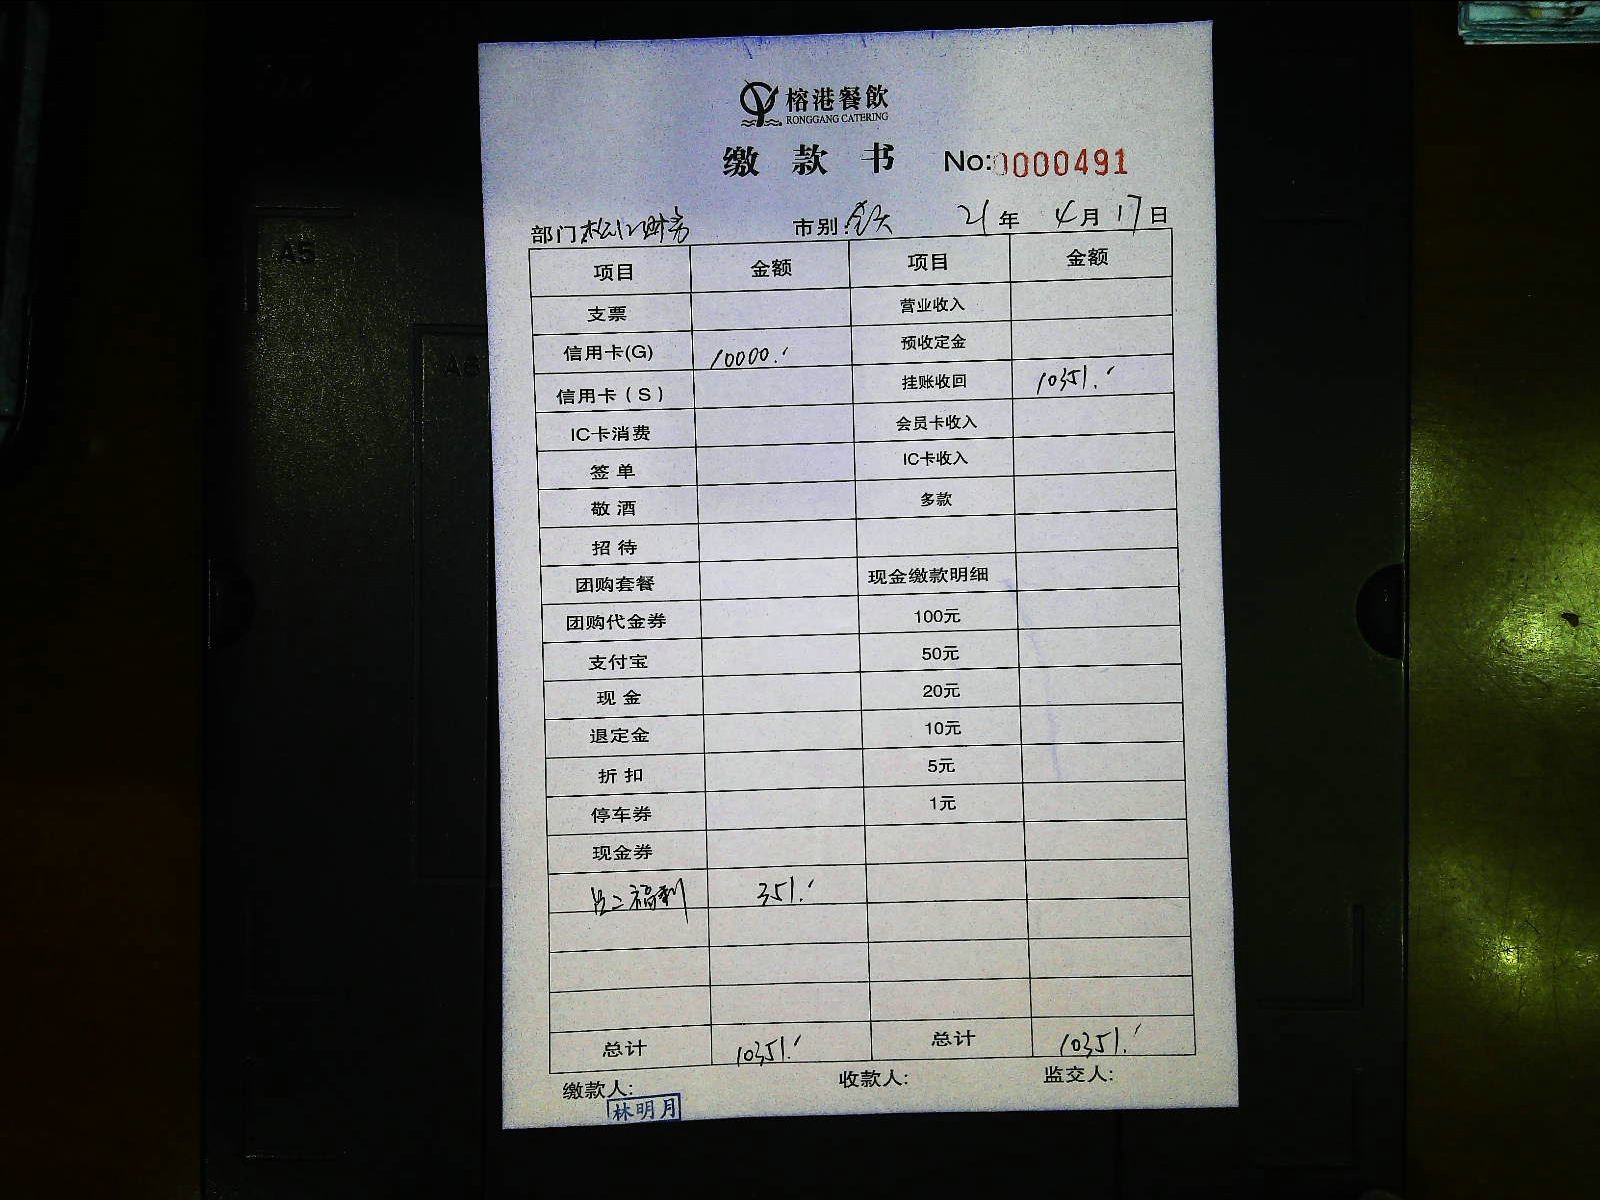 榕港餐飲
RONGGANG CATERING
缴款书 No:0000491
部门 松江财务 市别: 全天 21年 4月 17日
项目 金额 项目 金额
支票 营业收入
信用卡(G) 10000.- 预收定金
信用卡(S) 挂账收回 10351.-
IC卡消费 会员卡收入
签单 IC卡收入
敬酒 多款
招待
团购套餐 现金缴款明细
团购代金券 100元
支付宝 50元
现金 20元
退定金 10元
折扣 5元
停车券 1元
现金券
员工福利 351.-
总计 10351.- 总计 10351.-
缴款人: 收款人: 监交人:
林明月
A5
A6